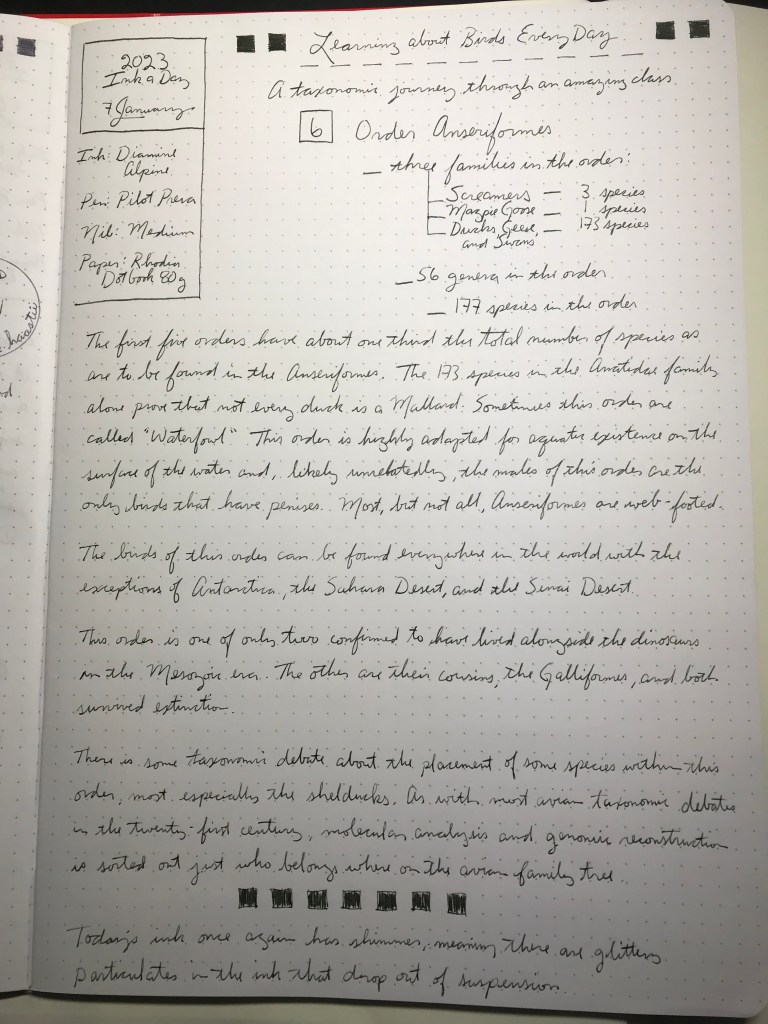 2023
Ink a Day
7 January
Ink: Diamine
Alpine
Pen: Pilot Prera
Nib: Medium
Paper: Rhodia
Dotbook 80g
Learning about Birds Every Day
A taxonomic journey through an amazing class
6 Order Anseriformes
— three families in the order:
Screamers — 3 species
Magpie Goose — 1 species
Ducks Geese, — 173 species
and Swans
— 56 genera in the order
— 177 species in the order
The first five orders have about one third the total number of species as
are to be found in the Anseriformes. The 173 species in the Anatidae family
alone prove that not every duck is a Mallard. Sometimes this order are
called "Waterfowl". This order is highly adapted for aquatic existence on the
surface of the water and, likely unrelatedly, the males of this order are the
only birds that have penises. Most, but not all, Anseriformes are web-footed.
The birds of this order can be found everywhere in the world with the
exceptions of Antarctica, the Sahara Desert, and the Sinai Desert.
This order is one of only two confirmed to have lived alongside the dinosaurs
in the Mesozoic era. The other are their cousins, the Galliformes, and both
survived extinction.
There is some taxonomic debate about the placement of some species within this
order, most especially the shelducks. As with most avian taxonomic debates
in the twenty-first century, molecular analysis and genomic reconstruction
is sorted out just who belongs where on the avian family tree.
Today's ink once again has shimmer, meaning there are glittery
particulates in the ink that drop out of suspension
haastii